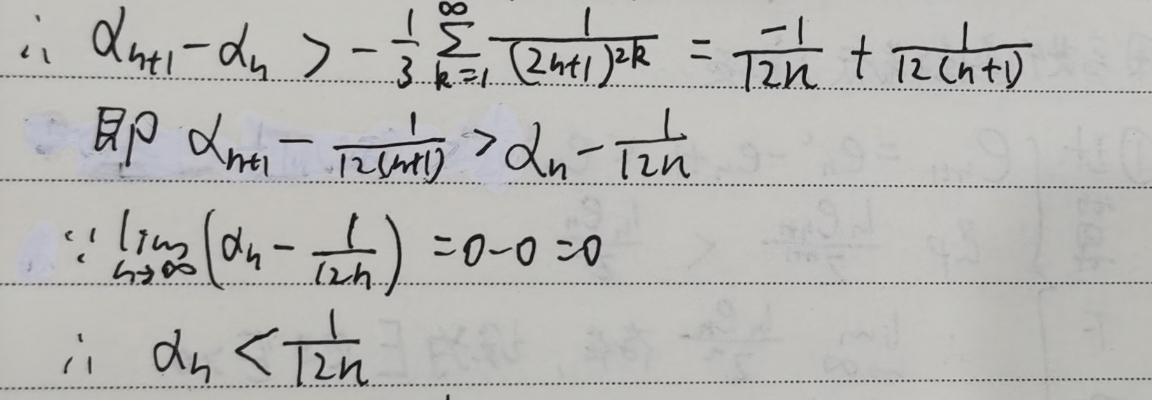 ∴ α_{n+1} - α_n > -\frac{1}{3} \sum_{k=1}^{∞} \frac{1}{(2n+1)^{2k}} = \frac{-1}{12n} + \frac{1}{12(n+1)}
即 α_{n+1} - \frac{1}{12(n+1)} > α_n - \frac{1}{12n}
∵ \lim_{n→∞} (α_n - \frac{1}{12n}) = 0-0 = 0
∴ α_n < \frac{1}{12n}